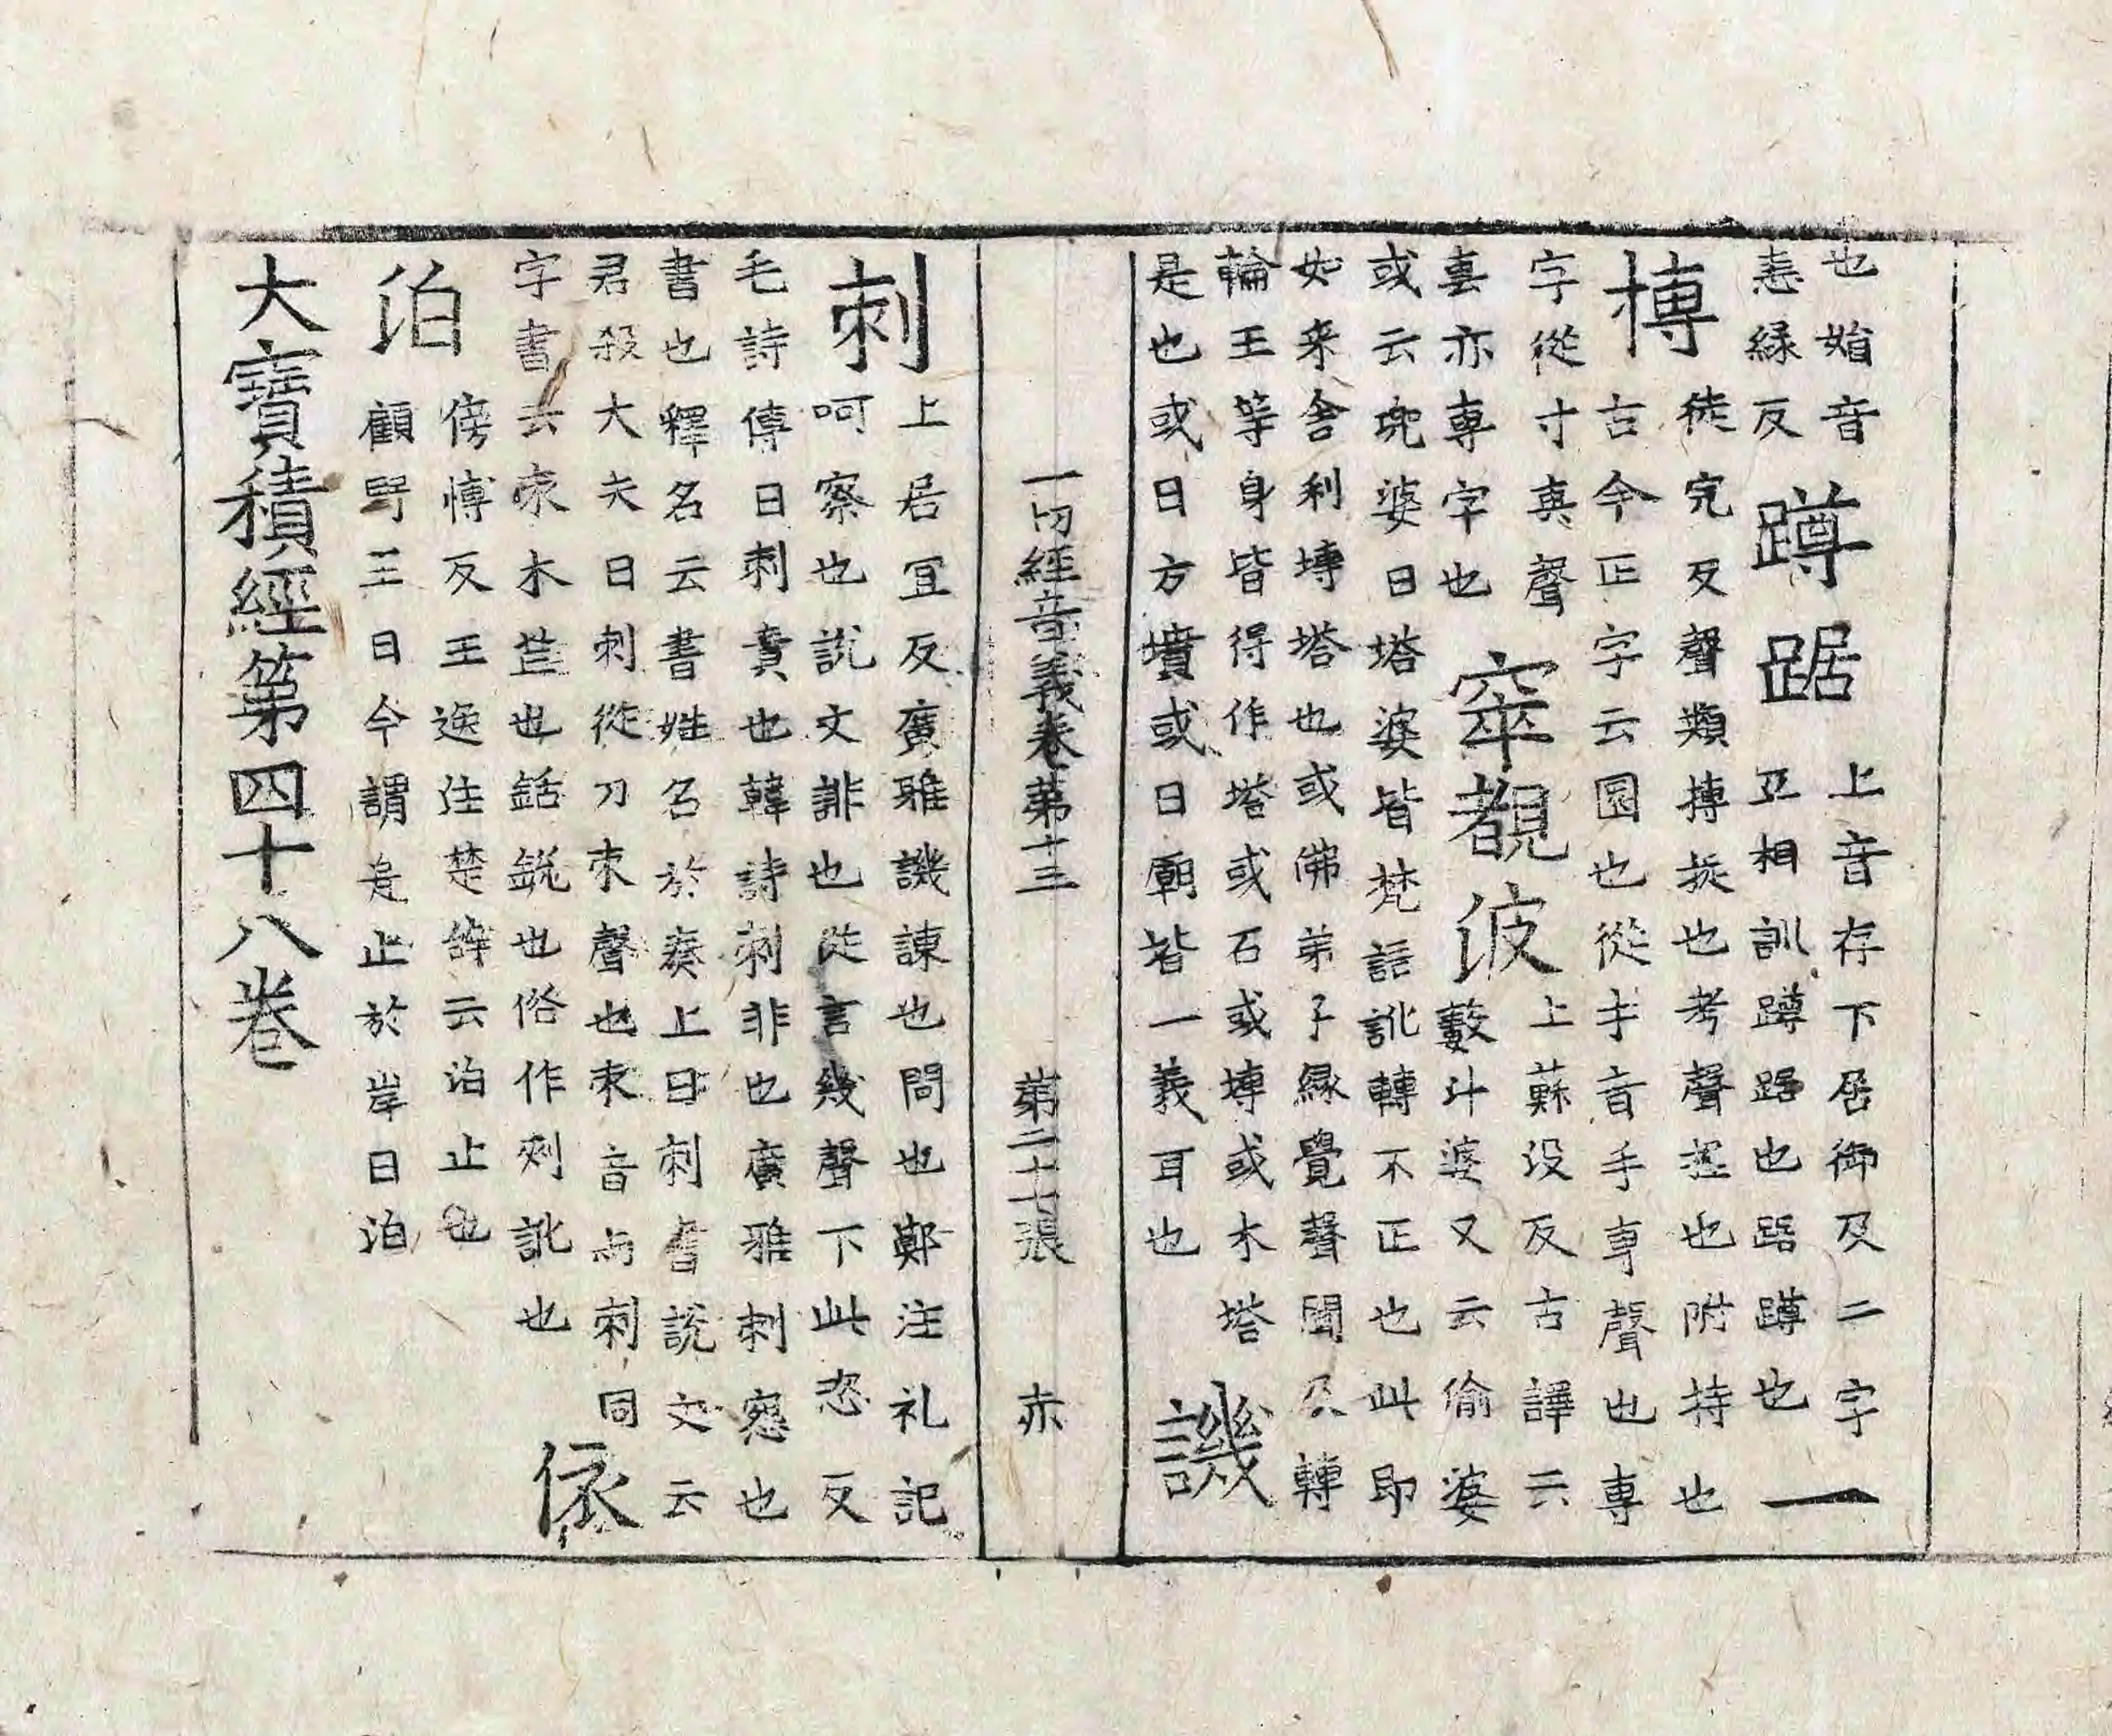 也㛐音
恚緣反蹲踞上音存下居御反二字
互相訓蹲踞也踞蹲也一
摶徒完反聲類摶捖也考聲握也附持也
古今正字云圓也從手音手專聲也專
字從寸叀聲
叀亦專字也窣覩波上蘇没反古譯云
藪斗婆又云偷婆
或云兜婆曰塔婆皆梵語訛轉不正也此即
如来舍利塼塔也或佛弟子緣覺聲聞及轉
輪王等身皆得作塔或石或塼或木塔
是也或曰方墳或曰廟皆一義耳也譏
一切經音義卷第十三 第二十七張 赤
刺上居宜反廣雅譏諫也問也鄭注礼記
呵察也説文誹也從言幾聲下此恣反
毛詩傳曰刺責也韓詩刺非也廣雅刺怨也
書也釋名云書書姓名於奏上曰刺書説文云
君殺大夫曰刺從刀朿聲也朿音与刺同
字書云朿木芒也銛鋭也俗作刾訛也依
泊傍博反王逸注楚辞云泊止也
顧野王曰今謂是止於岸曰泊
大寶積經第四十八卷